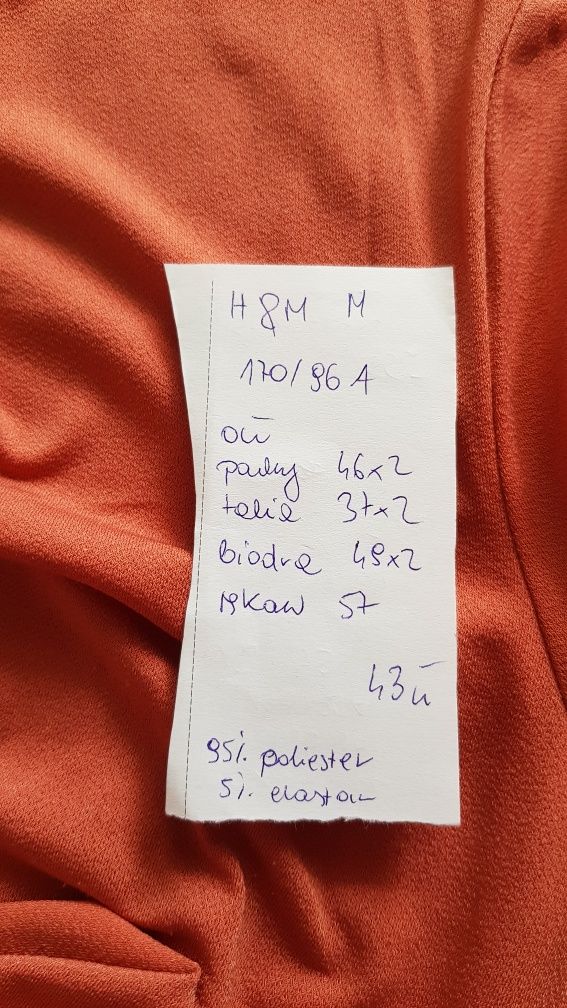 H&M M
170/96 A
pachy 46x2
talia 37x2
biodra 49x2
rękaw 57
43
95% poliester
5% elastan